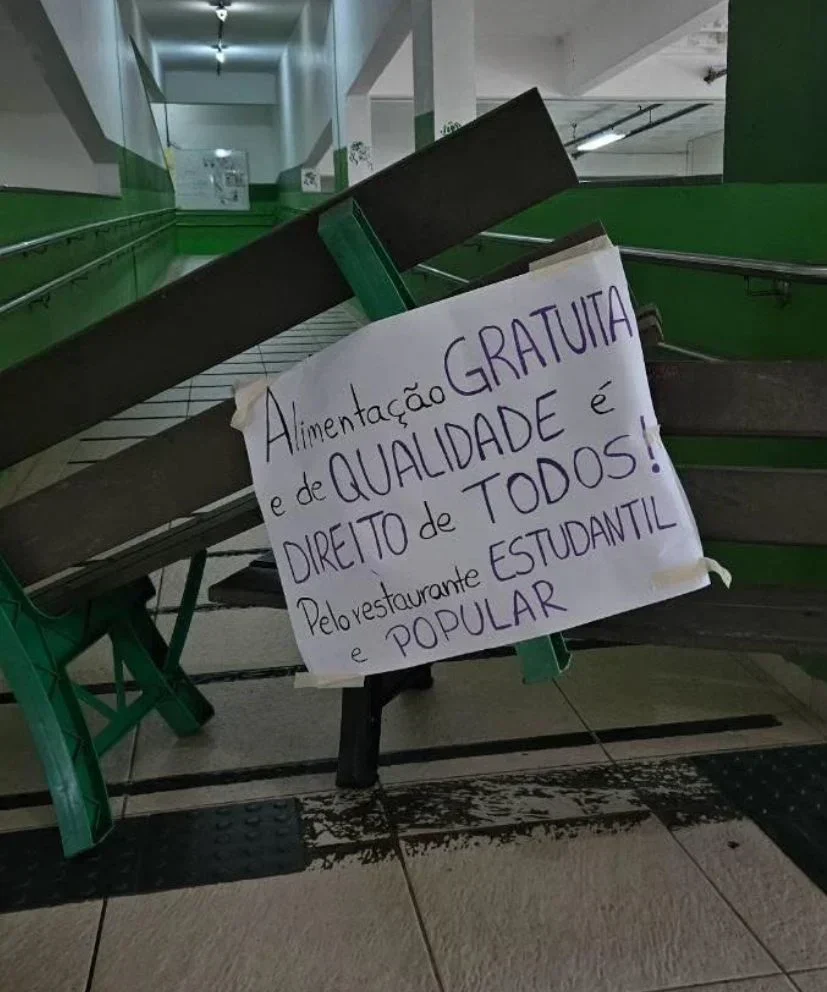 Alimentação GRATUITA
e de QUALIDADE é
DIREITO de TODOS!
Pelo restaurante ESTUDANTIL
e POPULAR